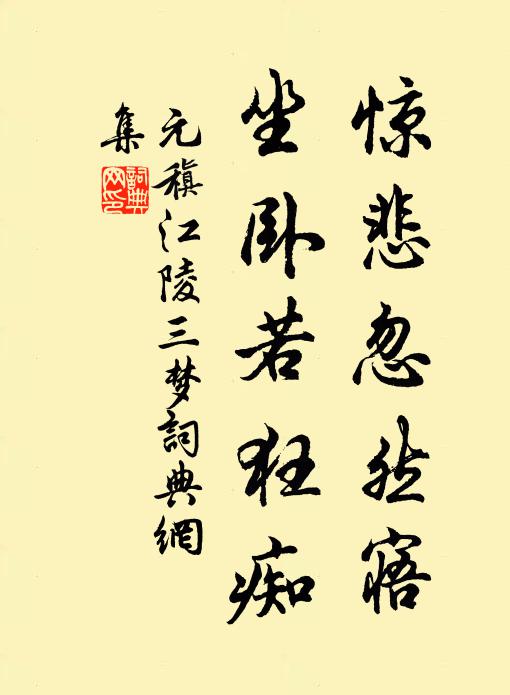 惊悲忽然寤
坐卧若狂痴
元稹江陵三梦詞典網
集
詞典
网印